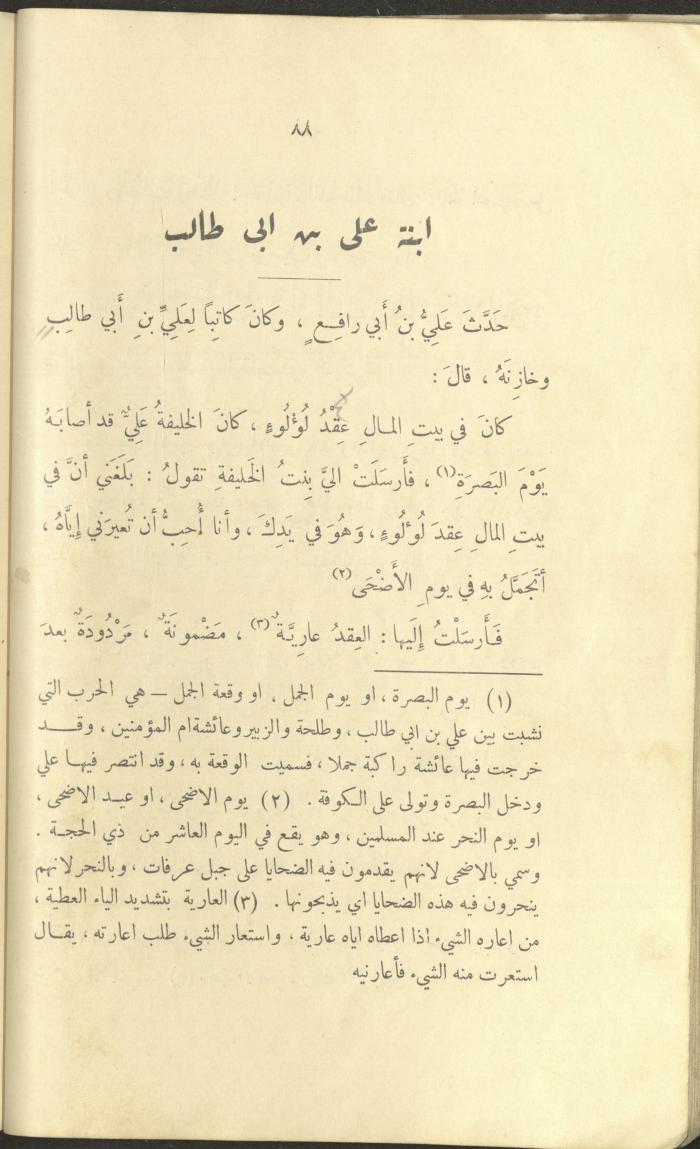 ٨٨
ابنة علي بن ابي طالب
حَدَّثَ عَلِيُّ بنُ أَبي رافِعٍ ، وكانَ كاتِباً لِعَلِيِّ بنِ أَبي طالِبٍ
وخازِنَهُ ، قالَ :
كانَ في بيتِ المالِ عِقْدُ لُؤْلُوءٍ ، كانَ الخليفةُ عَلِيٌّ قد أصابَهُ
يَوْمَ البَصرَةِ (١) ، فأَرسَلَتْ اليَّ بِنتُ الخَليفةِ تقولُ : بَلَغَني أنَّ في
بيتِ المالِ عِقدَ لُوءلُوءٍ ، وَهُوَ في يَدِكَ ، وأنا أُحِبُّ أن تُعيرَني إيَّاهُ ،
أتَجَمَّلُ بهِ في يومِ الأَضْحَى (٢)
فَأَرسَلْتُ إِلَيها : العِقدُ عارِيَّةٌ (٣) ، مَضْمونَةٌ ، مَرْدُودَةٌ بعدَ
(١) يوم البصرة ، او يوم الجمل ، او وقعة الجمل — هي الحرب التي
نشبت بين علي بن ابي طالب ، وطلحة والزبير وعائشة ام المؤمنين ، وقد
خرجت فيها عائشة راكبة جملا ، فسميت الوقعة به ، وقد انتصر فيها علي
ودخل البصرة وتولى على الكوفة . (٢) يوم الاضحى ، او عيد الاضحى ،
او يوم النحر عند المسلمين ، وهو يقع في اليوم العاشر من ذي الحجة .
وسمي بالاضحى لانهم يقدمون فيه الضحايا على جبل عرفات ، وبالنحر لانهم
ينحرون فيه هذه الضحايا اي يذبحونها . (٣) العارية بتشديد الياء العطية ،
من اعاره الشيء اذا اعطاه اياه عارية ، واستعار الشيء طلب اعارته ، يقال
استعرت منه الشيء فأعارنيه